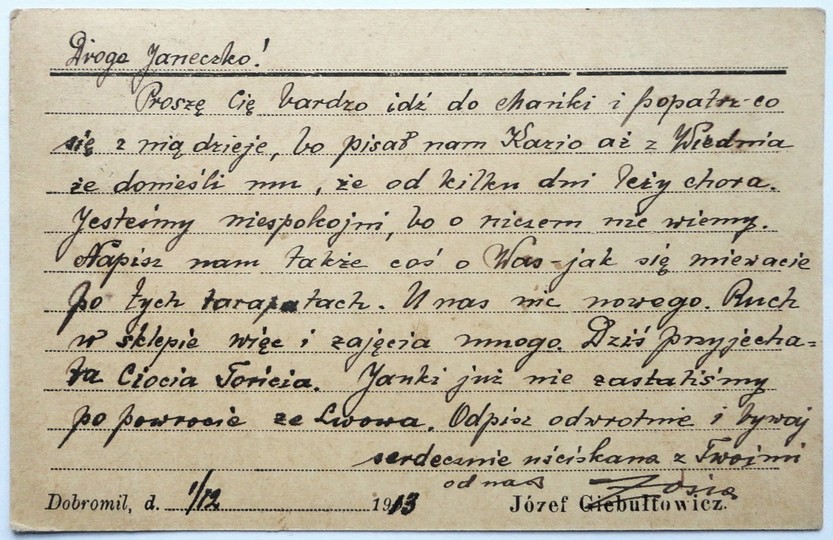 Droga Janeczko!
Proszę Cię bardzo idź do Chańki i popatrz co
się z nią dzieje, bo pisał nam Kazio aż z Wiednia
że donieśli mu, że od kilku dni leży chora.
Jesteśmy niespokojni, bo o niczem nic wiemy.
Napisz nam także coś o Was - jak się miewacie
po tych tarapatach. U nas nic nowego. Ruch
w sklepie więc i zajęcia mnogo. Dziś przyjecha=
ła Ciocia. Janki już nie zastaliśmy
po powrocie ze Lwowa. Odpisz odwrotnie i bywaj
serdecznie uściskana z Twojmi
od nas Zosia
Dobromil, d. 1/12 1913 Józef Giebułtowicz.